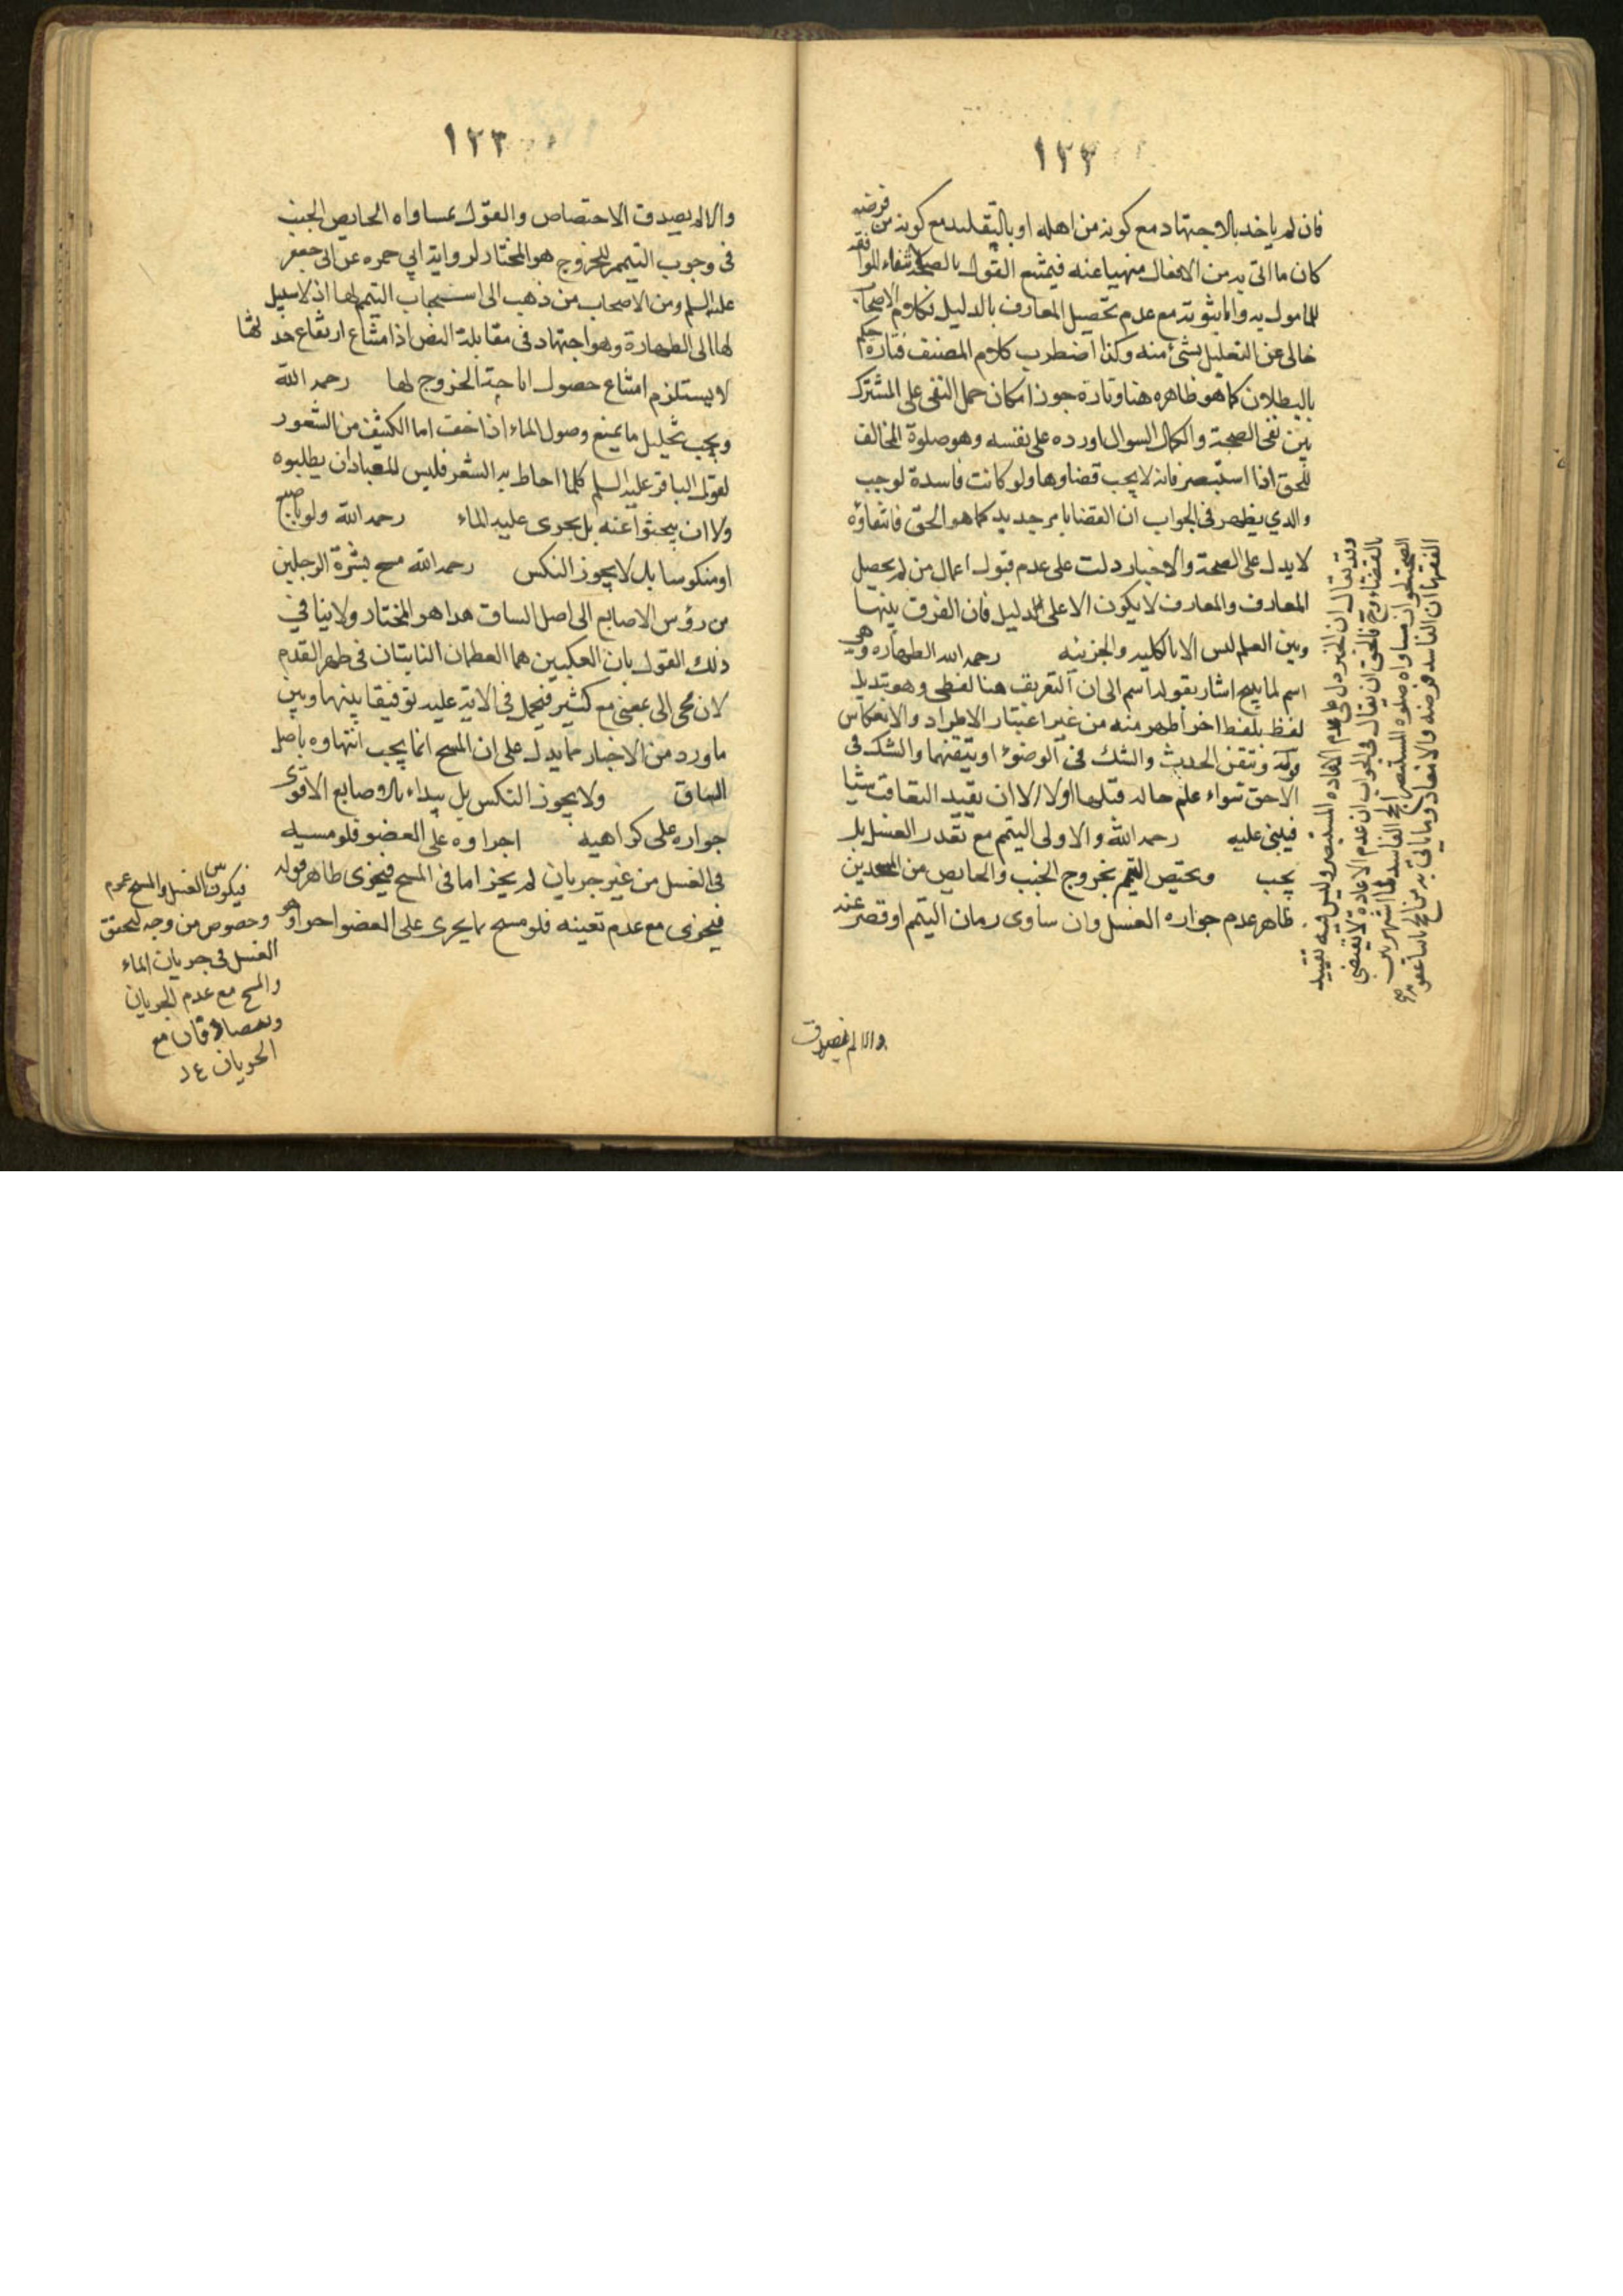 ١٢٢
فان لم ياخذ بالاجتهاد مع كونه من اهله او بالتقليد مع كونه من فرضه
كان ما اتى به من الافعال منهيا عنه فيمتنع القول بالصحة لانتفاء الموافقة
للمامول به واما مثوبته مع عدم تحصيل المعارف بالدليل فكلام الاصحاب
خالى عن التعليل بشئ منه وكذا اضطرب كلام المصنف فتارة حكم
بالبطلان كما هو ظاهره هنا وتارة جوز امكان حمل النفى على المشترك
بين نفى الصحة والكمال السوال اورده على نفسه وهو صلوة المخالف
للحق اذا استبصر فانه لا يجب قضاوها ولو كانت فاسدة لوجب
والذي يظهر فى الجواب ان القضا بامر جديد كما هو الحق فانتفاؤه
لا يدل على الصحة والاخبار دلت على عدم قبول اعمال من لم يحصل
المعارف والمعارف لا يكون الا على الدليل فان الفرق بينها
وبين العلم ليس الا بالكليه والجزئيه رحمه الله الطهاره وهي
اسم لما يبيح اشار بقوله اسم الى ان التعريف هنا لفظى وهو تبديل
لفظ بلفظ اخر اظهر منه من غير اعتبار الاطراد والانعكاس
قوله وتيقن الحدث والشك فى الوضوء او تيقنهما والشك فى
الاحق سواء علم حاله قبلها اولا الا ان يفيد التعاقب شيا
فيبنى عليه رحمه الله والاولى التيمم مع تعذر الغسل بل
يجب ويختص التيمم بخروج الجنب والحايض من المسجدين
ظاهر عدم جواره الغسل وان ساوى زمان التيمم او قصر عنه
وقد يقال ان الخبر دل على عدم الاعاده للمستبصر وليس فيه تقييد
بالقضاء وح فالحق ان يقال فى الجواب ان عدم الاعادة لا يقتضى
والا لم يصدق
١٢٣
والا لم يصدق الاختصاص والقول بمساواه الحايض الجنب
فى وجوب التيمم للخروج هو المختار لرواية ابي حمزه عن ابى جعفر
عليه السلم ومن الاصحاب من ذهب الى استحباب التيمم لها اذ لا سبيل
لها الى الطهارة وهو اجتهاد فى مقابلة النص اذ امتناع ارتفاع حدثها
لا يستلزم امتناع حصول اباحة الخروج لها رحمه الله
ويجب تخليل ما يمنع وصول الماء اذا خفت اما الكثيف من الشعور
لقول الباقر عليه السلم كلما احاط به الشعر فليس للعباد ان يطلبوه
ولا ان يبحثوا عنه بل يجرى عليه الماء رحمه الله ولو باصبع
او منكوسا بل لا يجوز النكس رحمه الله مسح بشرة الرجلين
من رؤس الاصابع الى اصل الساق هذا هو المختار ولا ينافي
ذلك القول بان الكعبين هما العظمان الناتيان فى ظهر القدم
لان مجى الى بمعنى مع كثير فيحمل فى الاية عليه توفيقا بينها وبين
ما ورد من الاخبار مما يدل على ان المسح انما يجب انتهاوه باصل
الساق ولا يجوز النكس بل يبداء بالاصابع الاقوى
جواره على كراهيه اجراوه على العضو فلو مسه
فى الغسل من غير جريان لم يجز اما فى المسح فيجزى ظاهر قوله
فيجزى مع عدم تعينه فلو مسح بما يجرى على العضو اجزا وهو
فيكون بين الغسل والمسح عموم
وخصوص من وجه لتحقق
الغسل فى جريان الماء
والمسح مع عدم الجريان
ويتصادقان مع
الجريان